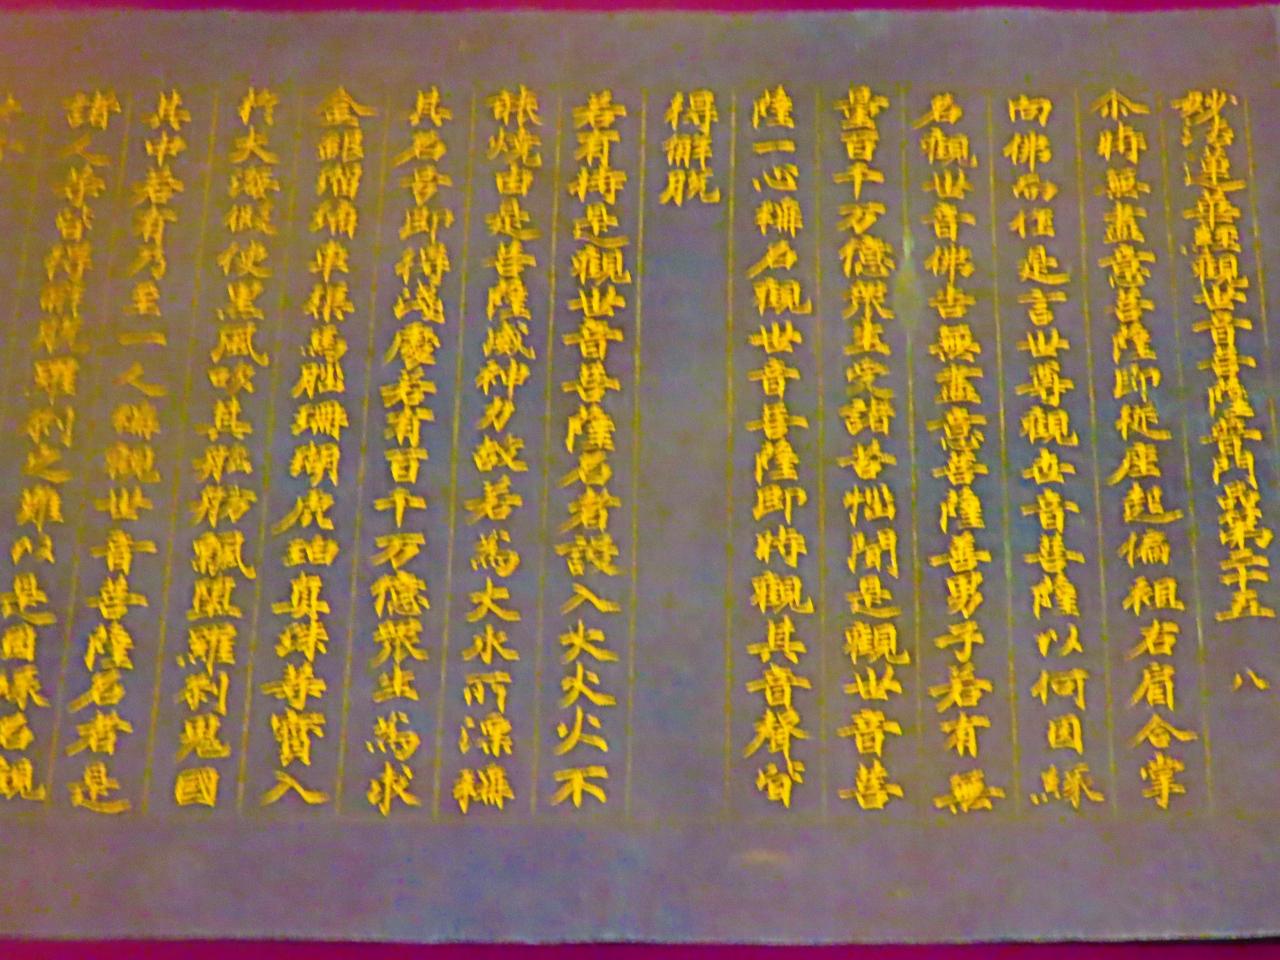 妙法蓮華經觀世音菩薩普門品第二十五 八
尒時無盡意菩薩即從座起偏袒右肩合掌
向佛而作是言世尊觀世音菩薩以何因緣
名觀世音佛告無盡意菩薩善男子若有無
量百千万億衆生受諸苦惱聞是觀世音菩
薩一心稱名觀世音菩薩即時觀其音聲皆
得解脫
若有持是觀世音菩薩名者設入大火火不
能燒由是菩薩威神力故若為大水所漂稱
其名号即得淺處若有百千万億衆生為求
金銀瑠璃車𤦲馬瑙珊瑚虎珀真珠等寶入
於大海假使黑風吹其舩舫飄墮羅刹鬼國
其中若有乃至一人稱觀世音菩薩名者是
諸人等皆得解脫羅刹之難以是因緣名觀